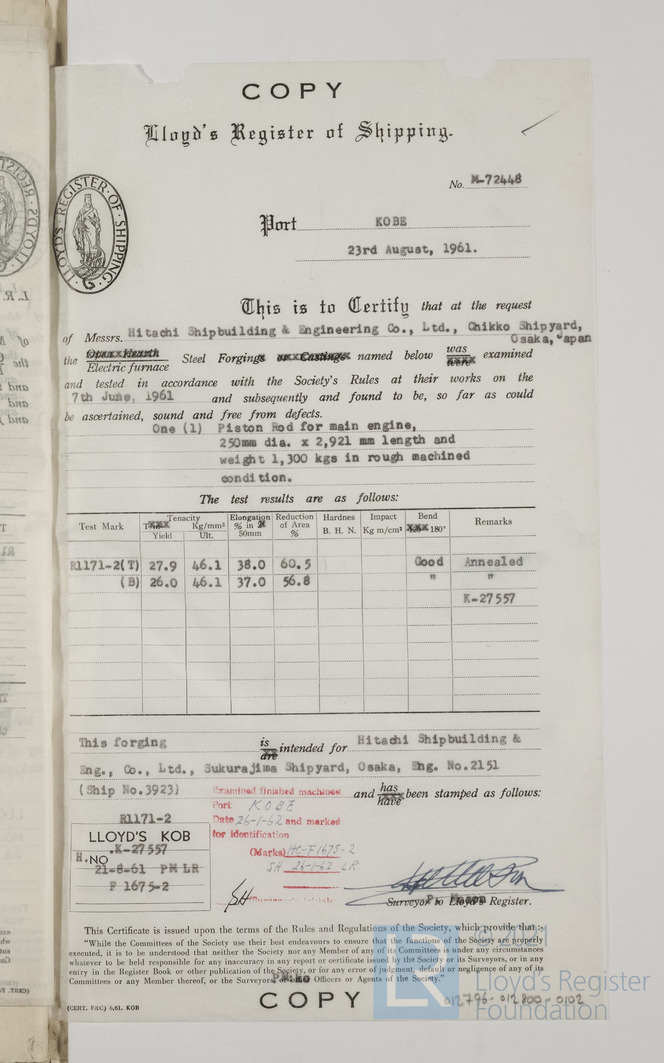 COPY
Lloyd's Register of Shipping.
No. M-72448
LLOYD'S REGISTER OF SHIPPING
Port KOBE
23rd August, 1961.
This is to Certify that at the request
of Messrs. Hitachi Shipbuilding & Engineering Co., Ltd., Chikko Shipyard,
Osaka, Japan
the Open Hearth Electric furnace Steel Forgings or Castings named below was were examined
and tested in accordance with the Society's Rules at their works on the
7th June, 1961 and subsequently and found to be, so far as could
be ascertained, sound and free from defects.
One (1) Piston Rod for main engine,
250mm dia. x 2,921 mm length and
weight 1,300 kgs in rough machined
condition.
The test results are as follows:
Test Mark Tenacity Kg/mm² Yield Ult. Elongation % in 50mm Reduction of Area % Hardnes B. H. N. Impact Kg m/cm² Bend 180° Remarks
R1171-2(T) 27.9 46.1 38.0 60.5 Good Annealed
(B) 26.0 46.1 37.0 56.8 " "
K-27557
This forging is are intended for Hitachi Shipbuilding &
Eng., Co., Ltd., Sukurajima Shipyard, Osaka, Eng. No.2151
(Ship No.3923) and has have been stamped as follows:
Examined finished machines
Port KOBE
Date 26-1-62 and marked
for identification
(Marks) HC-F1675-2
SH 26-1-62 LR
R1171-2
LLOYD'S KOB
.K-27557
H.NO
21-8-61 PM LR
F 1675-2
SH
Surveyor to Lloyd's Register.
This Certificate is issued upon the terms of the Rules and Regulations of the Society, which provide that:-
"While the Committees of the Society use their best endeavours to ensure that the functions of the Society are properly
executed, it is to be understood that neither the Society nor any Member of any of its Committees is under any circumstances
whatever to be held responsible for any inaccuracy in any report or certificate issued by the Society or its Surveyors, or in any
entry in the Register Book or other publication of the Society, or for any error of judgment, default or negligence of any of its
Committees or any Member thereof, or the Surveyors, or Officers or Agents of the Society."
COPY
(CERT. F&C) 6,61. KOB
012796-012800-0102
© 2021
Lloyd's Register
Foundation